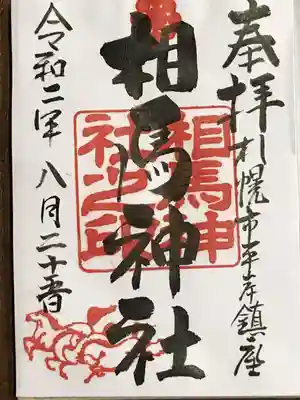 奉拝 札幌市平岸鎮座
相馬神社
相馬神
社之印
令和二年八月二十五日